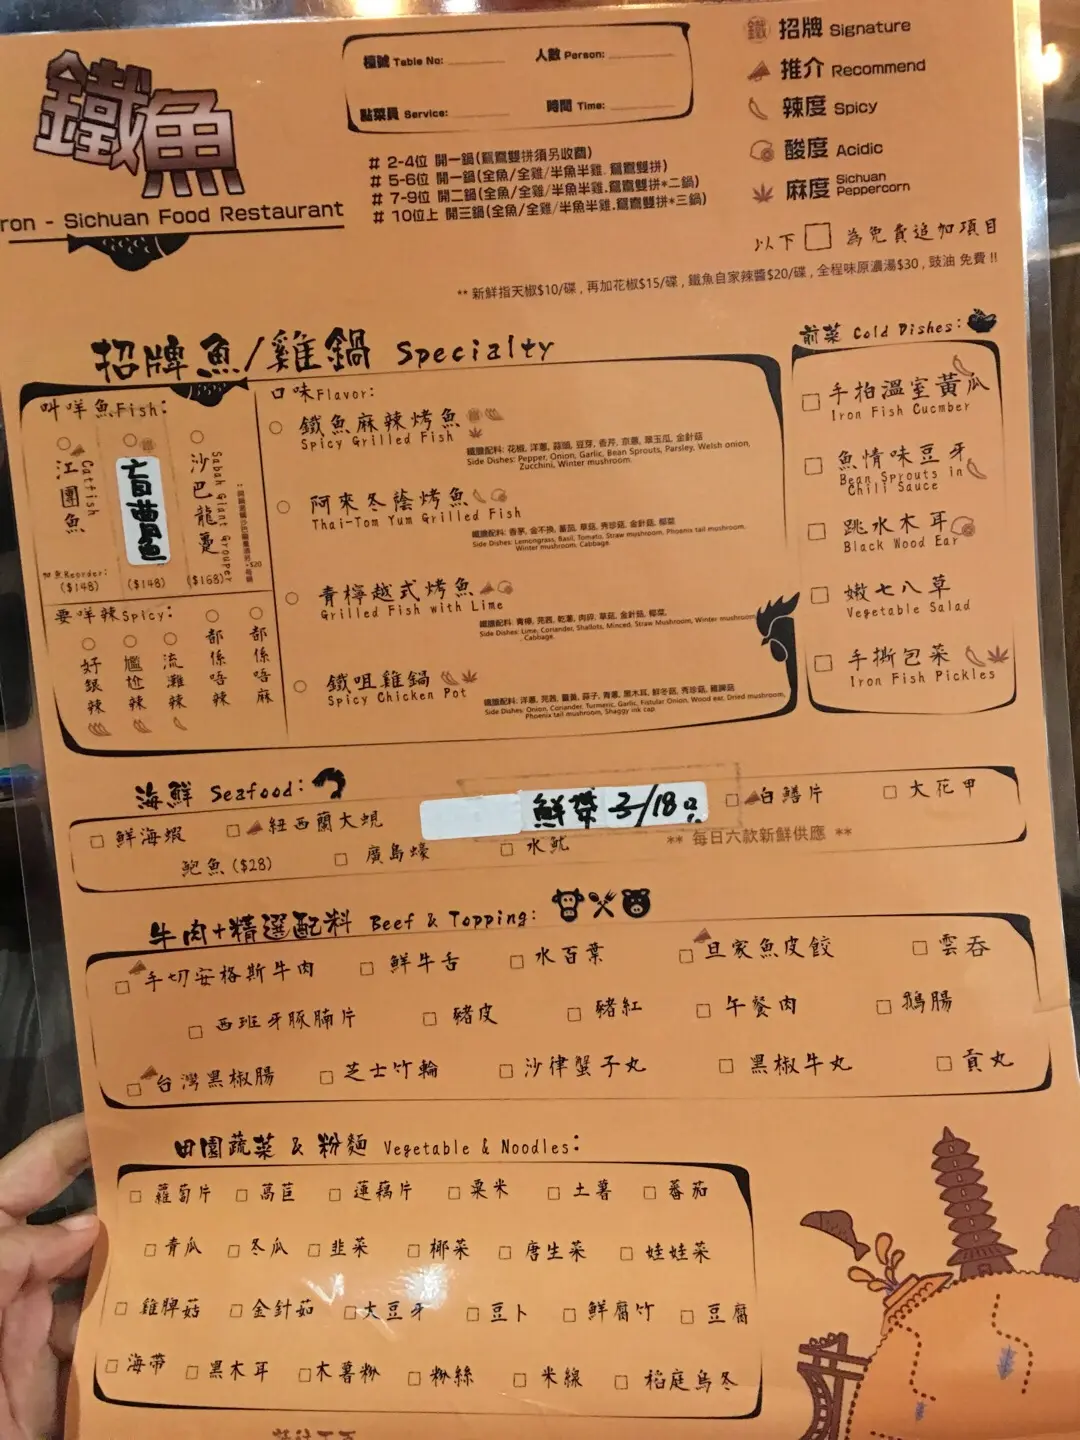 鐵魚
ron - Sichuan Food Restaurant
檯號 Table No:
人數 Person:
點菜員 Service:
時間 Time:
鐵 招牌 Signature
推介 Recommend
辣度 Spicy
酸度 Acidic
麻度 Sichuan Peppercorn
# 2-4位 開一鍋(鴛鴦雙拼須另收費)
# 5-6位 開一鍋(全魚/全雞/半魚半雞.鴛鴦雙拼)
# 7-9位 開二鍋(全魚/全雞/半魚半雞.鴛鴦雙拼*二鍋)
# 10位上 開三鍋(全魚/全雞/半魚半雞.鴛鴦雙拼*三鍋)
以下 □ 為免費追加項目
** 新鮮指天椒$10/碟 , 再加花椒$15/碟 , 鐵魚自家辣醬$20/碟 , 全程味原濃湯$30 , 豉油 免費 !!
招牌魚/雞鍋 Specialty
叫咩魚Fish:
江團魚 Catfish
加魚Reorder: ($148)
盲曹
($148)
沙巴龍躉 Sabah Giant Grouper
($168)
要咩辣Spicy:
好銀辣
尷尬辣
流灘辣
都係唔辣
都係唔麻
口味Flavor:
鐵魚麻辣烤魚
Spicy Grilled Fish
鐵膽配料: 花椒, 洋蔥, 蒜頭, 豆芽, 香芹, 京蔥, 翠玉瓜, 金針菇
Side Dishes: Pepper, Onion, Garlic, Bean Sprouts, Parsley, Welsh onion,
Zucchini, Winter mushroom
阿來冬蔭烤魚
Thai-Tom Yum Grilled Fish
鐵膽配料: 香茅, 金不換, 蕃茄, 草菇, 秀珍菇, 金針菇, 椰菜
Side Dishes: Lemongrass, Basil, Tomato, Straw mushroom, Phoenix tail mushroom,
Winter mushroom, Cabbage
青檸越式烤魚
Grilled Fish with Lime
鐵膽配料: 青檸, 芫茜, 乾蔥, 肉碎, 草菇, 金針菇, 椰菜
Side Dishes: Lime, Coriander, Shallots, Minced, Straw Mushroom, Winter mushroom
, Cabbage
鐵咀雞鍋
Spicy Chicken Pot
Side Dishes: Onion, Coriander, Turmeric, Garlic, Fistular Onion, Wood ear, Dried mushroom,
Phoenix tail mushroom, Shaggy ink cap
前菜 Cold Dishes:
手拍溫室黃瓜
Iron Fish Cucmber
魚情味豆牙
Bean Sprouts in
Chili Sauce
跳水木耳
Black Wood Ear
嫩七八草
Vegetable Salad
手撕包菜
Iron Fish Pickles
海鮮 Seafood:
鮮海蝦
紐西蘭大蜆
3/18
白鱔片
大花甲
鮑魚($28)
廣島蠔
水魷
** 每日六款新鮮供應 **
牛肉+精選配料 Beef & Topping:
手切安格斯牛肉
鮮牛舌
水百葉
旦家魚皮餃
雲吞
西班牙豚腩片
豬皮
豬紅
午餐肉
鵝腸
台灣黑椒腸
芝士竹輪
沙律蟹子丸
黑椒牛丸
貢丸
田園蔬菜 & 粉麵 Vegetable & Noodles:
蘿蔔片
萵苣
蓮藕片
粟米
土薯
蕃茄
青瓜
冬瓜
韭菜
椰菜
唐生菜
娃娃菜
雞脾菇
金針茹
大豆牙
豆卜
鮮腐竹
豆腐
海帶
黑木耳
木薯粉
粉絲
米線
稻庭烏冬